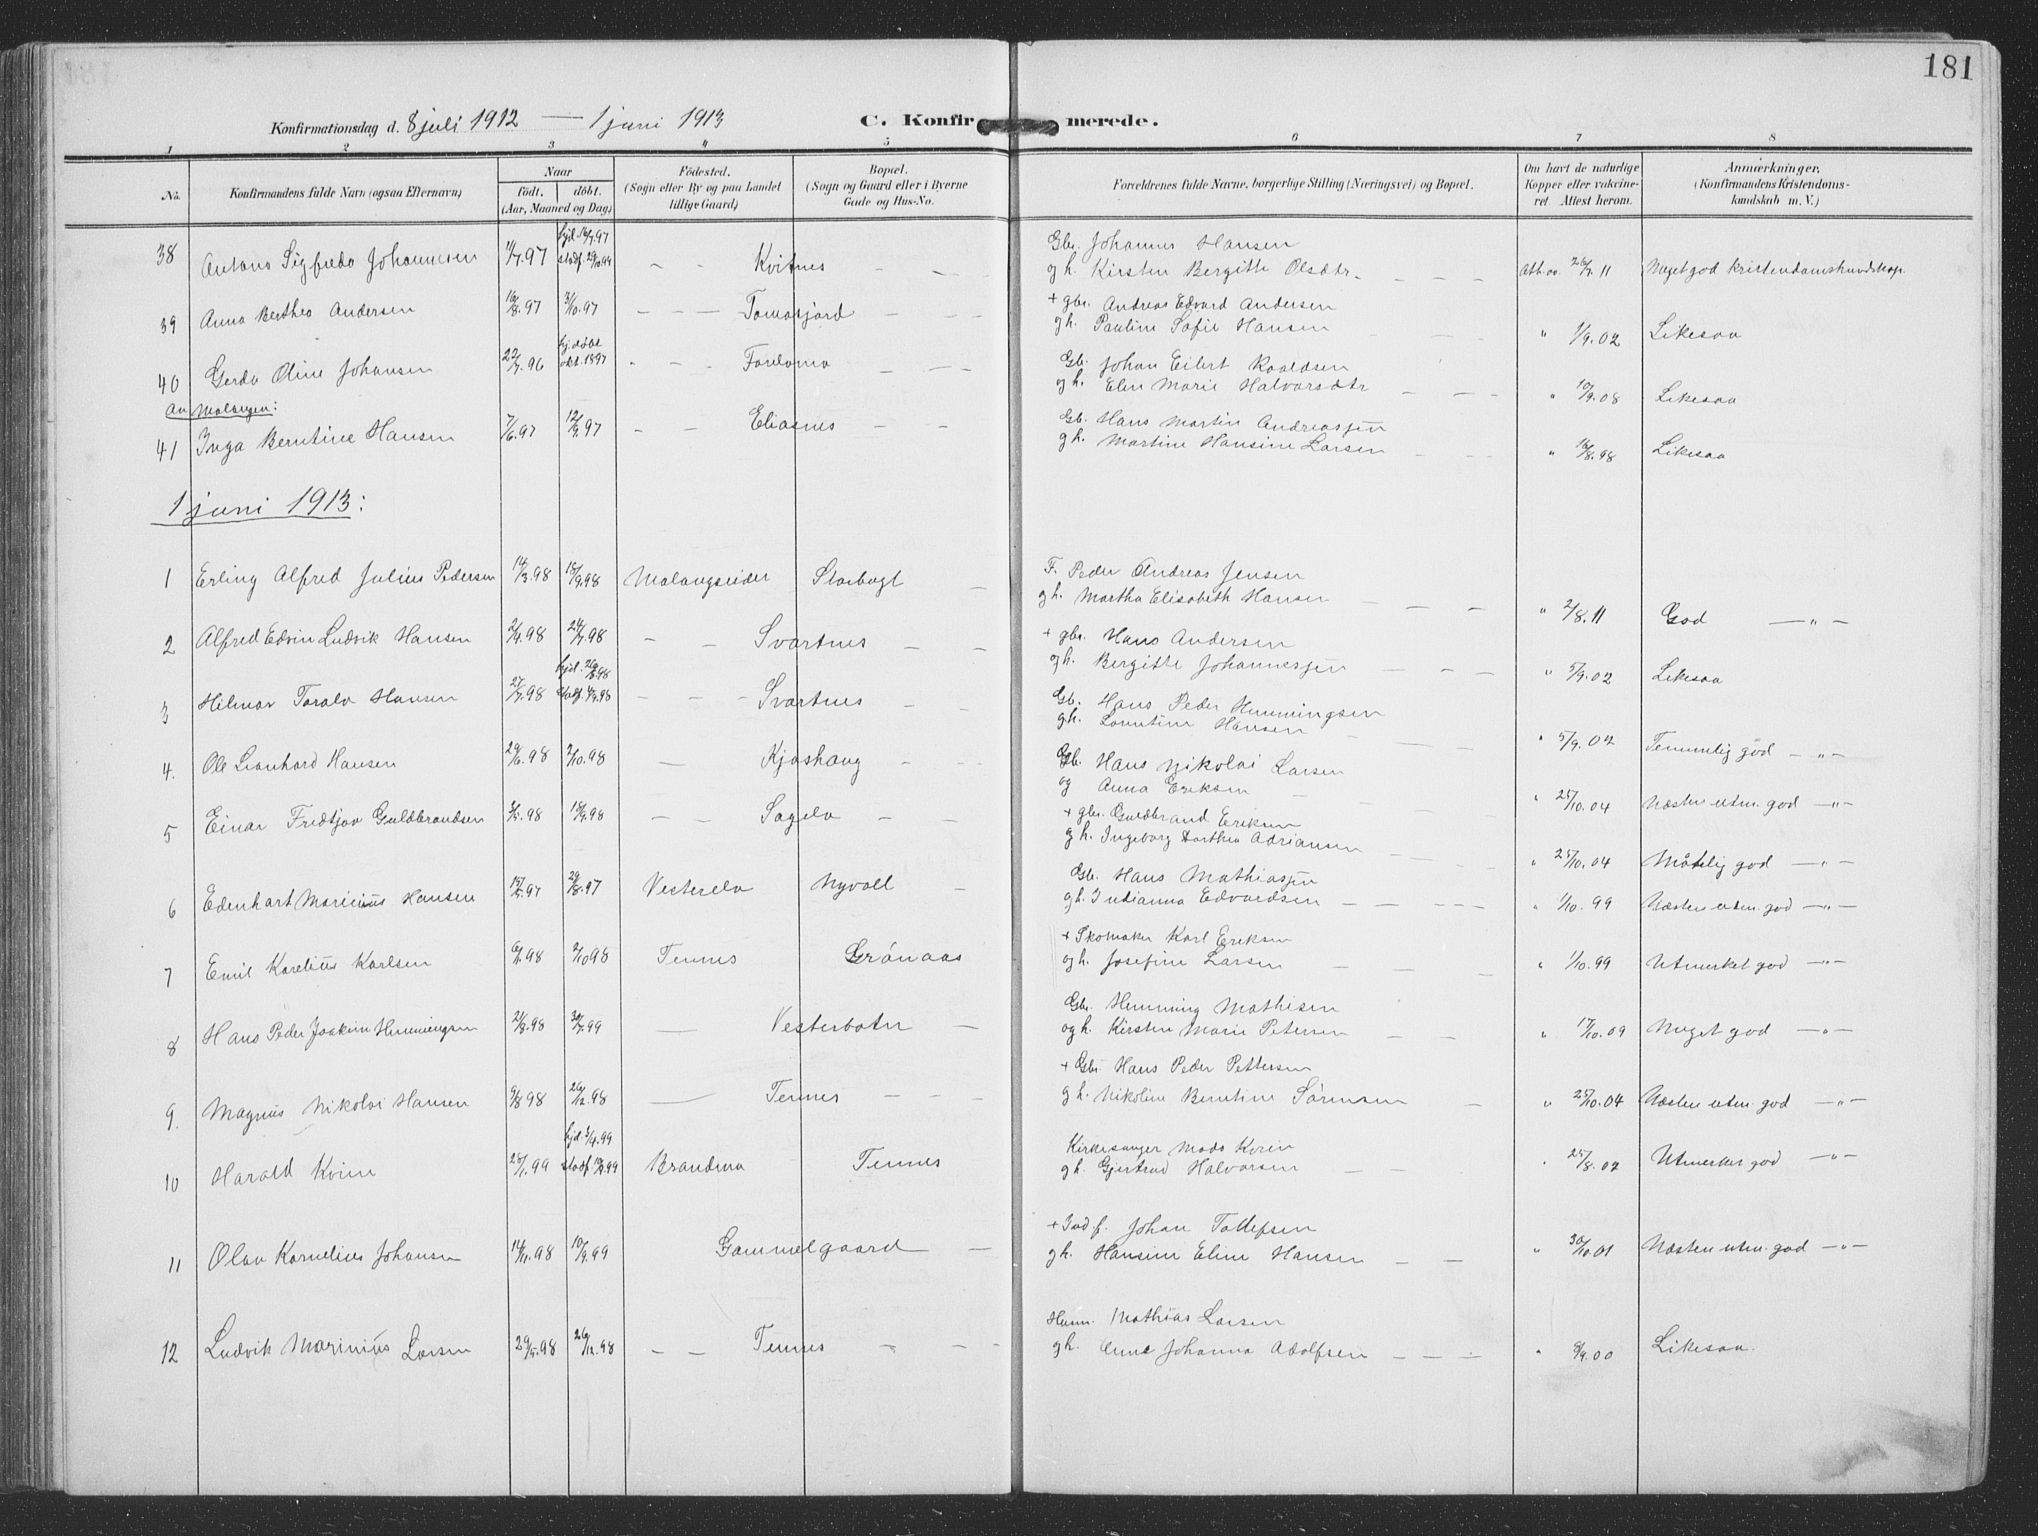 181
Konfirmationsdag d. 8 juli 1912 — 1 juni 1913 C. Konfirmerede.
1 2 3 4 5 6 7 8
No. Konfirmandens fulde Navn (ogsaa Efternavn) Naar födt. döbt. (Aar, Maaned og Dag) Födested. (Sogn eller By og paa Landet tillige Gaard) Bopæl. (Sogn og Gaard eller i Byerne Gade og Hus-No. Forældrenes fulde Navne, borgerlige Stilling (Næringsvei) og Bopæl. Om havt de naturlige Kopper eller vakcineret. Attest herom. Anmærkninger, (Konfirmandens Kristendomskundskab m. V.)
hjd. 16/7.97 Gbr. Johannes Hansen
38 Antona Sigfreda Johannesen 1/7.97 stadf. — — Kvitnes — — og h. Kirsten Bergitte Olsdtr — — — Att. 26/7 11 Meget god kristendomskundskap.
+ gbr. Andreas Edvard Andersen
39 Anna Berthea Andersen 16/8.97 31/10.97 — — — Tomasjord — — gh. Pauline Sofie Hansen — — " 1/9.02 Likesaa
hj. döbt Gb. Johan Eilert Roaldsen
40 Gerda Oline Johansen 22/7.96 okt. 1897 " — — — — og h. Elen Marie Halvorsdtr — — — " 10/9.08 Likesaa
Av Malangen: Gb. Hans Martin Andreassen
41 Inga Berntine Hansen 7/6.97 12/9.97 — — Eliasnes — — gh. Martine Hansine Larsen — — — " 16/8.98 Likesaa
1 juni 1913:
F. Peder Andreas Jensen
1 Erling Alfred Julius Pedersen 14/3.98 15/9.98 Malangseidet Storbugt — gh. Martha Elisabeth Hansen — — — " 2/8.11 God — " —
+ gbr. Hans Andersen
2 Alfred Edvin Ludvik Hansen 2/4.98 24/7.98 — — Svartnes — — gh. Bergitte Johannessen — — — " 5/9.02 Likesaa
Gb. Hans Peder Hemmingsen
3 Hilmar Toralv Hansen 27/7.98 — — — Svartnes — — gh. Lorentine Hansen — — " 5/9.02 Temmelig god — " —
Gb. Hans Nikolai Larsen
4. Ole Leonhard Hansen 29/6.98 2/10.98 — Kjoshaug — — og Anna Eriksen — — " 25/10.04 Næsten utm. god — " —
+ gbr. Guldbrand Eriksen
5 Einar Fridtjov Guldbrandsen 3/5.98 18/9.98 — — Sagelv — — gh. Ingeborg Dorthea Adriansen — — " 25/10.04 Måtelig god — " —
Gb. Hans Mathiassen
6 Edenhart Maricius Hansen 29/8.97 Vesterelv Nyvoll — gh. Indianna Edvardsen — — — — " 1/10.99 Næsten utm. god — " —
+ Skomaker Karl Eriksen
7 Emil Karelius Karlsen 2/10 98 Tennes Grönaas og h. Josefine Larsen — — — " 1/10.99 Utmerket god — " —
Gbr. Hemming Mathisen
8 Hans Peder Joakim Hemmingsen 30/7.99 — Vesterbotn — og h. Kirsten Marie Petersen — — " 17/10.09 Meget god — " —
+ Gbr. Hans Peder Pettersen
9. Magnus Nikolai Hansen 9/8 98 26/12.98 — Tennes — — — gh. Nikoline Berntine Sörensen — " 25/10.04 Næsten utm. god — " —
hjd. 3/4.99 Kirkesanger Mads Kvien
10 Harald Kvien 28/1.99 Brandmo Tennes gh. Gjertrud Halvorsen — — " 25/8.02 Utmerket god — " —
+ Ind. f. Johan Tollefsen
11 Olav Kornelius Johansen 14/11.98 10/9.99 Gammelgaard — gh. Hansine Eline Hansen — — " 30/10.01 Næsten utm. god — " —
Husm. Mathias Larsen
12 Ludvik Marinius Larsen 29/9.98 26/12.98 — — Tennes — — gh. Anne Johanna Adolfsen — — — — " 8/9.00 Likesaa.